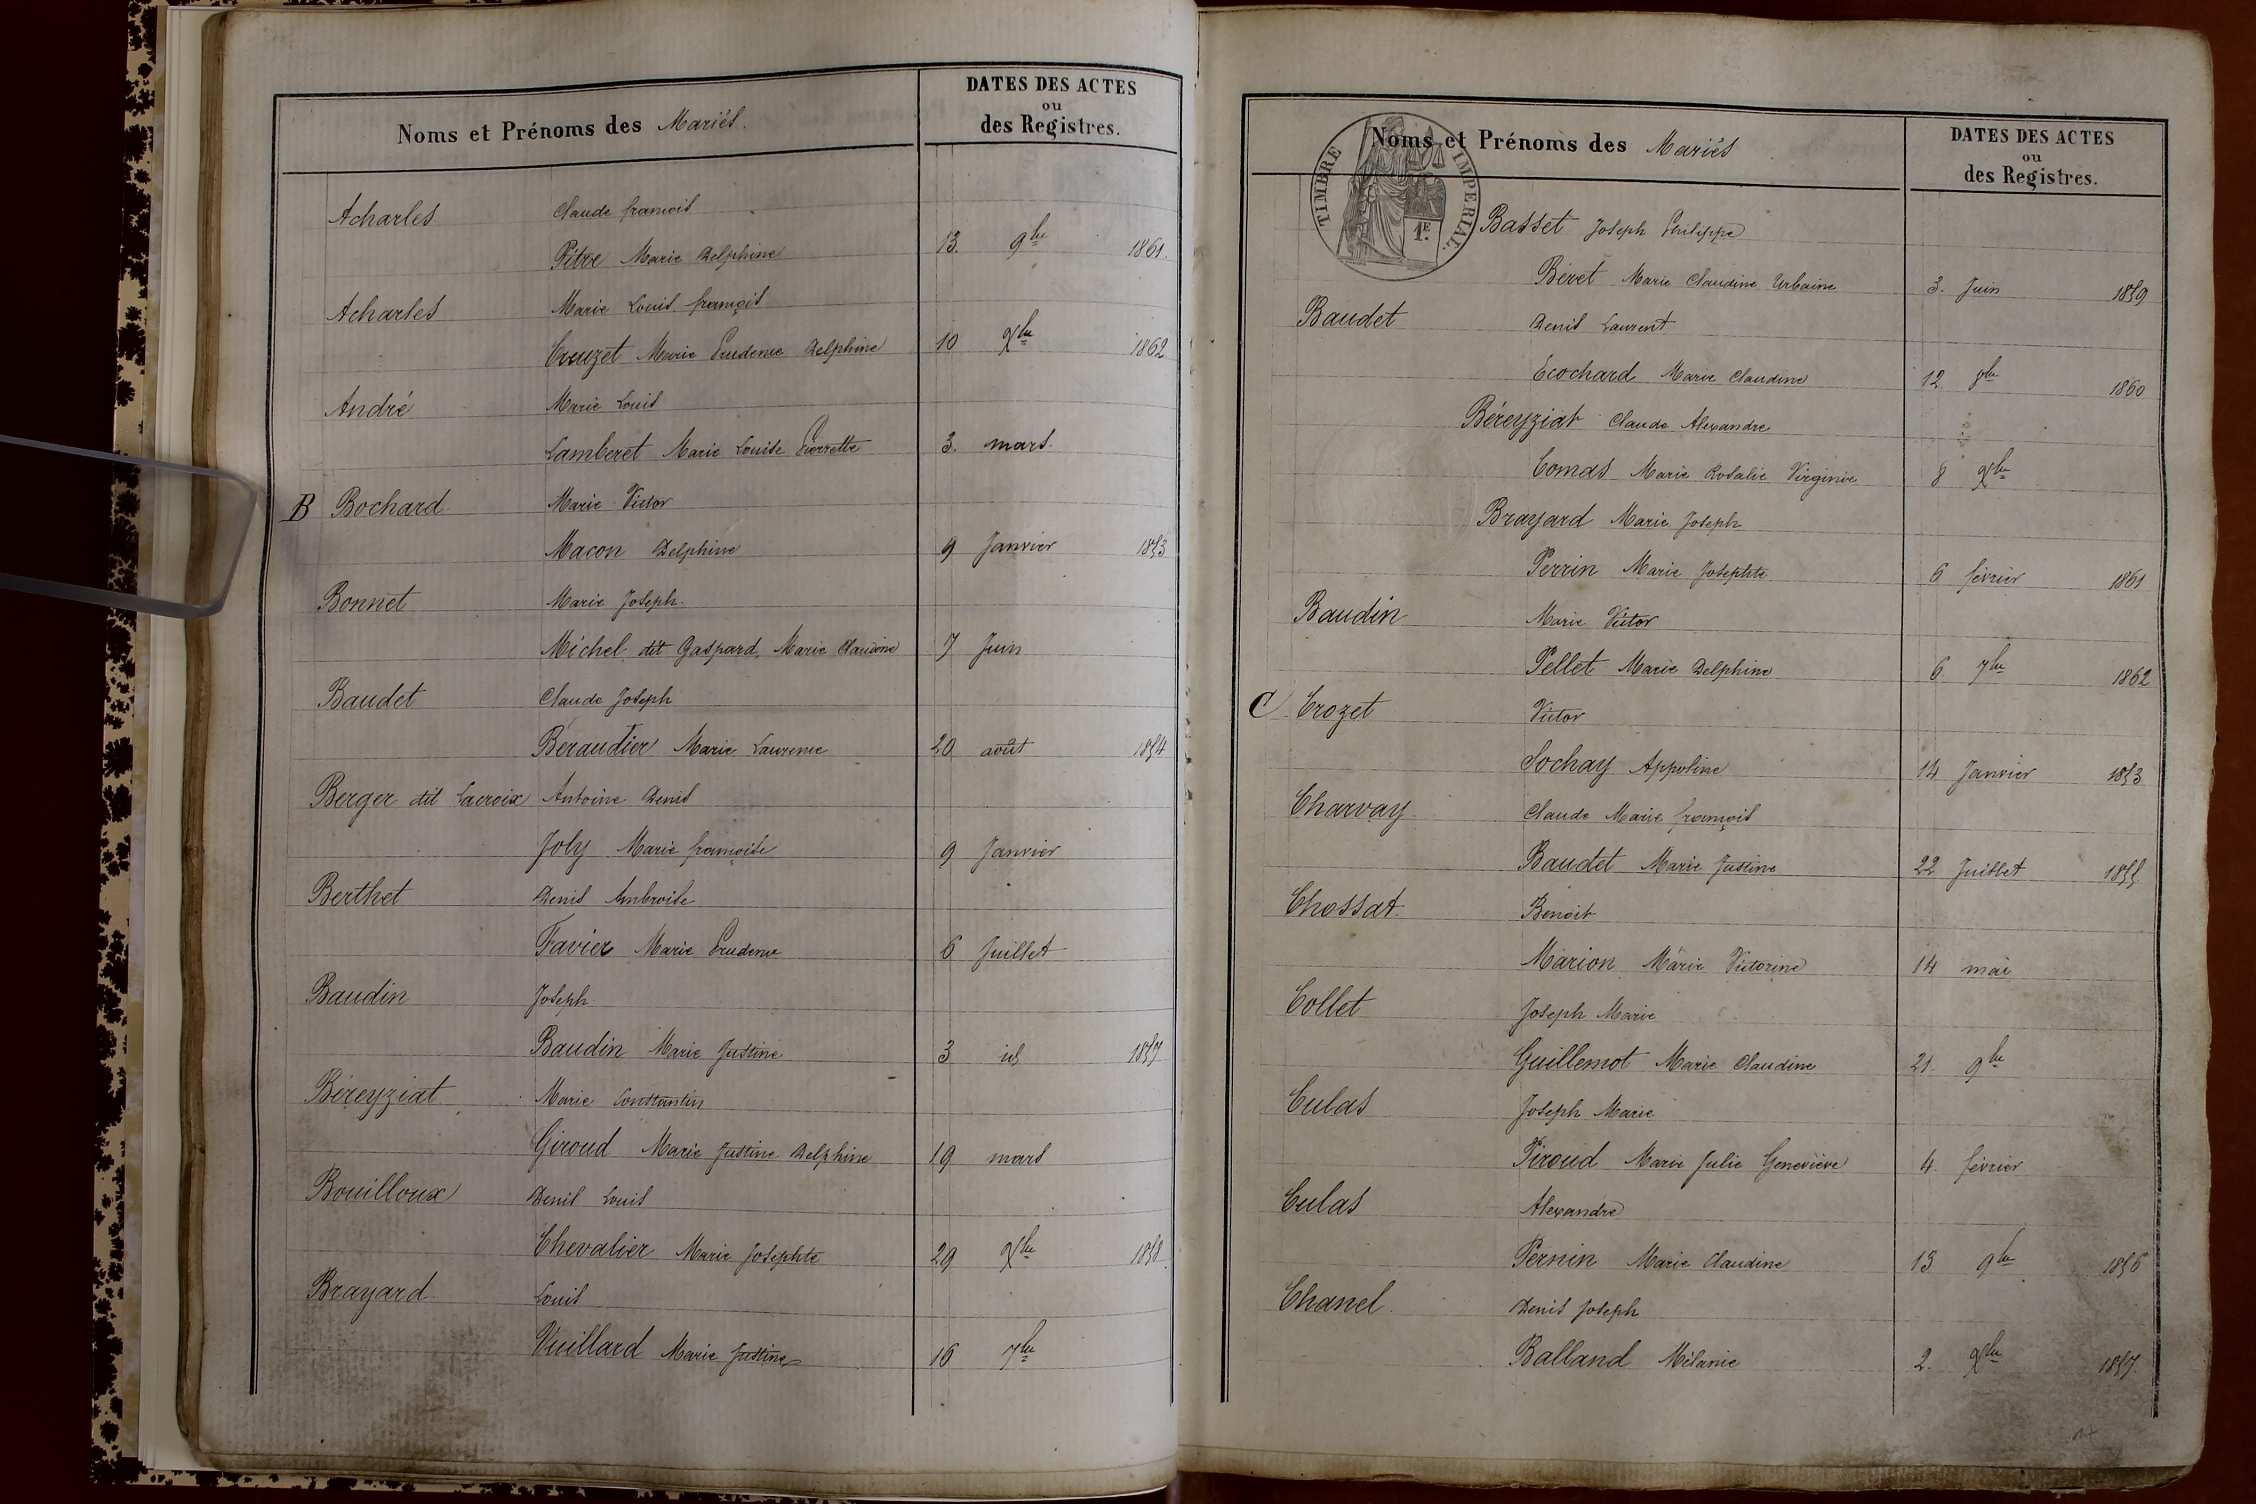 Noms et Prénoms des Mariés.
DATES DES ACTES
ou
des Registres.
Acharles Claude françois
Pitre Marie Delphine 13. 9bre 1861.
Acharles Marie Louis françois
Crouzet Marie Prudence Delphine 10 Xbre 1862
André Marie Louis
Lamberet Marie Louise Pierrette 3. mars.
B Bochard Marie Victor
Macon Delphine 9 Janvier 1853
Bonnet Marie Joseph.
Michel dit Gaspard Marie Claudine 7 Juin
Baudet Claude Joseph
Beraudier Marie Laurence 20 août 1854
Berger dit Lacroix Antoine Denis
Joly Marie françoise 9 Janvier
Berthet Denis Ambroise
Favier Marie Prudence 6 Juillet
Baudin Joseph
Baudin Marie Justine 3 id 1857
Béreyziat Marie Constantin
Giroud Marie Justine Delphine 19 mars
Bouilloux Denis Louis
Chevalier Marie Josephte 29 Xbre 1858
Brayard Louis
Vuillard Marie Justine 16 7bre
Noms et Prénoms des Mariés
DATES DES ACTES
ou
des Registres.
TIMBRE IMPERIAL.
1E.
Basset Joseph Philippe
Béret Marie Claudine Urbaine 3. Juin 1859
Baudet Denis Laurent
Ecochard Marie Claudine 12 8bre 1860
Béreyziat Claude Alexandre
Comas Marie Rosalie Virginie 8 Xbre
Brayard Marie Joseph
Perrin Marie Josephte 6 février 1861
Baudin Marie Victor
Pellet Marie Delphine 6 7bre 1862
C Crozet Victor
Sochay Appoline 14 Janvier 1853
Charvay Claude Marie françois
Baudet Marie Justine 22 Juillet 1855
Chossat Benoit
Marion Marie Victorine 14 mai
Collet Joseph Marie
Guillemot Marie Claudine 21. 9bre
Culas Joseph Marie
Piroud Marie Julie Geneviève 4. février
Culas Alexandre
Pernin Marie Claudine 13 9bre 1856
Chanel Denis Joseph
Balland Mélanie 2. Xbre 1857.